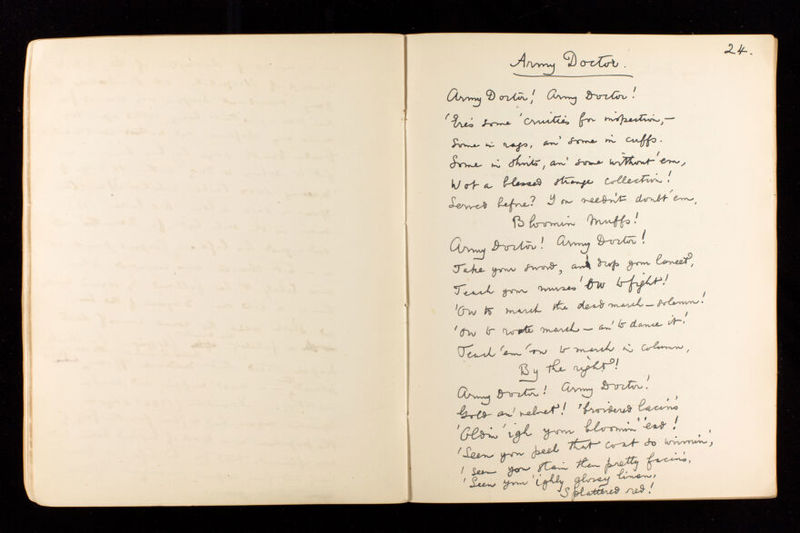 24.
Army Doctor.
Army Doctor! Army Doctor!
'Ere's some 'cruities for inspection,—
Some in rags, an' some in cuffs.
Some in shirts, an' some without 'em,
Wot a blessed strange collection!
Served before? You needn't doubt 'em,
Bloomin Muffs!
Army Doctor! Army Doctor!
Take your sword, and drop your lancet,
Teach your nurses 'ow to fight!
'Ow to march the dead march—solemn!
'Ow to route march—an' to dance it!
Teach 'em 'ow to march in column,
By the right!
Army Doctor! Army Doctor!
Gold an' velvet! 'broidered lacins'
'Oldin' 'igh your bloomin' 'ead!
'Seen you peel that coat so winnin',
'Seen you stain them pretty facins,
'Seen your 'ighly glossy linen,
Splattered red!